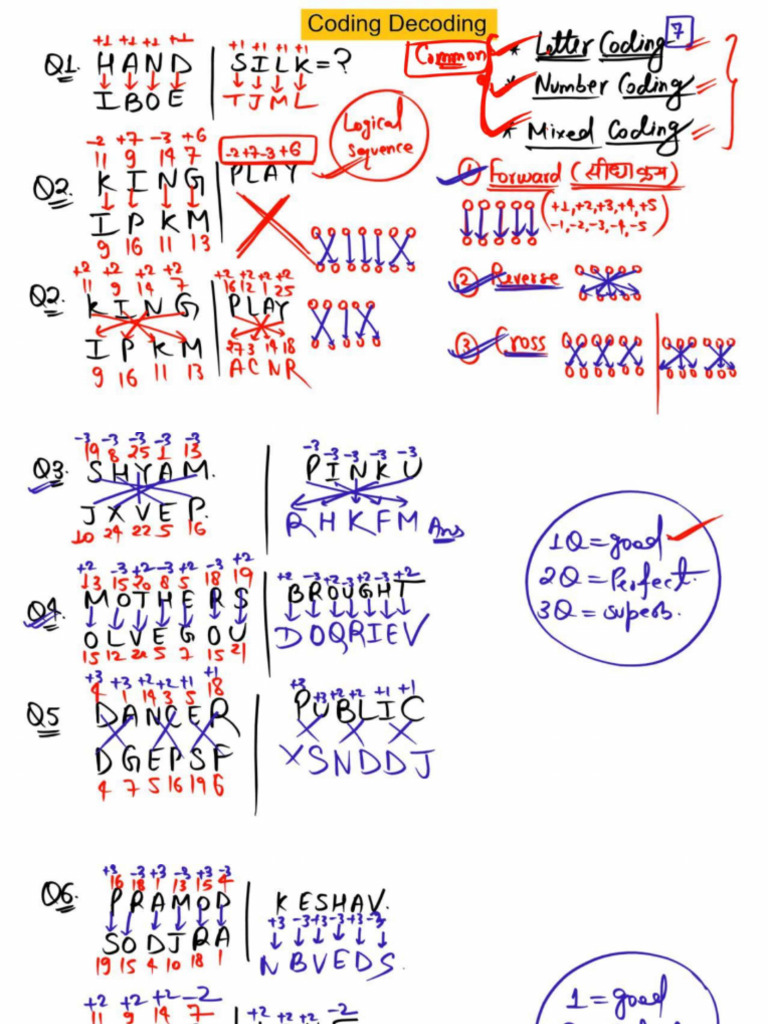 Coding Decoding
+1 +1 +1 +1
Q1. H A N D | S I L K = ?
+1 +1 +1 +1
I B O E | T J M L
Common
* Letter Coding 7
* Number Coding
* Mixed Coding
Logical sequence
-2 +7 -3 +6
11 9 14 7
Q2. K I N G | P L A Y
-2+7-3+6
I P K M
9 16 11 13
① Forward (सीधा क्रम)
(+1, +2, +3, +4, +5
-1, -2, -3, -4, -5)
② Reverse
③ Cross
+2 +2 +2 +2
11 9 14 7
Q2. K I N G | P L A Y
+2 +2 +2 +2
16 12 1 25
I P K M
9 16 11 13
27 3 14 18
A C N R
-3 -3 -3 -3 -3
19 8 25 1 13
Q3. S H Y A M. | P I N K U
-3 -3 -3 -3 -3
J X V E P. | R H K F M Ans
10 24 22 5 16
1Q = good
2Q = Perfect.
3Q = superb.
+2 -3 +2 -3 +2 -3 +2
13 15 20 8 5 18 19
Q4. M O T H E R S | B R O U G H T
+2 -3 +2 -3 +2 -3 +2
O L V E G O U | D O Q R I E V
15 12 22 5 7 15 21
+3 +3 +2 +2 +1 +1
4 1 14 3 5 18
Q5 D A N C E R | P U B L I C
+3 +3 +2 +2 +1 +1
D G E P S F | X S N D D J
4 7 5 16 19 6
+3 -3 +3 -3 +3 -3
16 18 1 13 15 4
Q6. P R A M O D | K E S H A V.
+3 -3 +3 -3 +3 -3
S O D J R A | N B V E D S.
19 15 4 10 18 1
1 = good
+2 +2 +2 -2
11 9 14 7
+2 +2 +2 -2